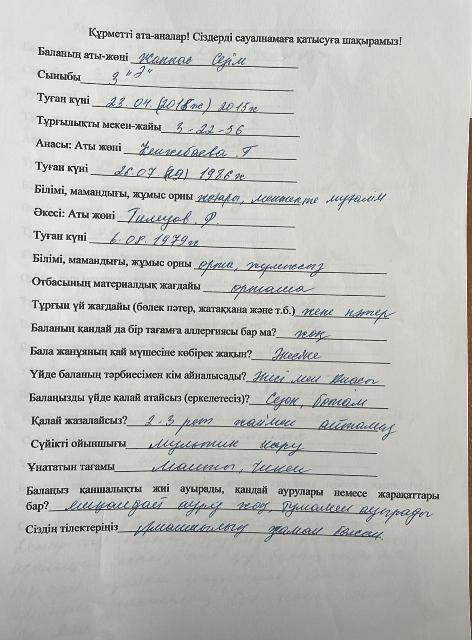 Құрметті ата-аналар! Сіздерді сауалнамаға қатысуға шақырамыз!
Баланың аты-жөні Сезім
Сыныбы 3 "Ә"
Туған күні 23.04. 2015ж
Тұрғылықты мекен-жайы 3-22-56
Анасы: Аты жөні Кенжебаева Г
Туған күні 26.07 1986ж
Білімі, мамандығы, жұмыс орны жоғары, мектепте мұғалім
Әкесі: Аты жөні Тилеуов. Ф.
Туған күні 6.08.1979ж
Білімі, мамандығы, жұмыс орны орта, жұмыссыз
Отбасының материалдық жағдайы орташа
Тұрғын үй жағдайы (бөлек пәтер, жатақхана және т.б.) жеке пәтер
Баланың қандай да бір тағамға аллергиясы бар ма? жоқ
Бала жанұяның қай мүшесіне көбірек жақын? Әкесіне
Үйде баланың тәрбиесімен кім айналысады? Әкесі мен анасы
Балаңызды үйде қалай атайсыз (еркелетесіз)? Сезок, ботам
Қалай жазалайсыз? 2-3 рет жаймен айтамыз
Сүйікті ойыншығы мультик көру
Ұнататын тағамы Манты,
Балаңыз қаншалықты жиі ауырады, қандай аурулары немесе жарақаттары
бар? ешқандай ауруы жоқ, Тұмаумен ауырады
Сіздің тілектеріңіз жаман болсын.